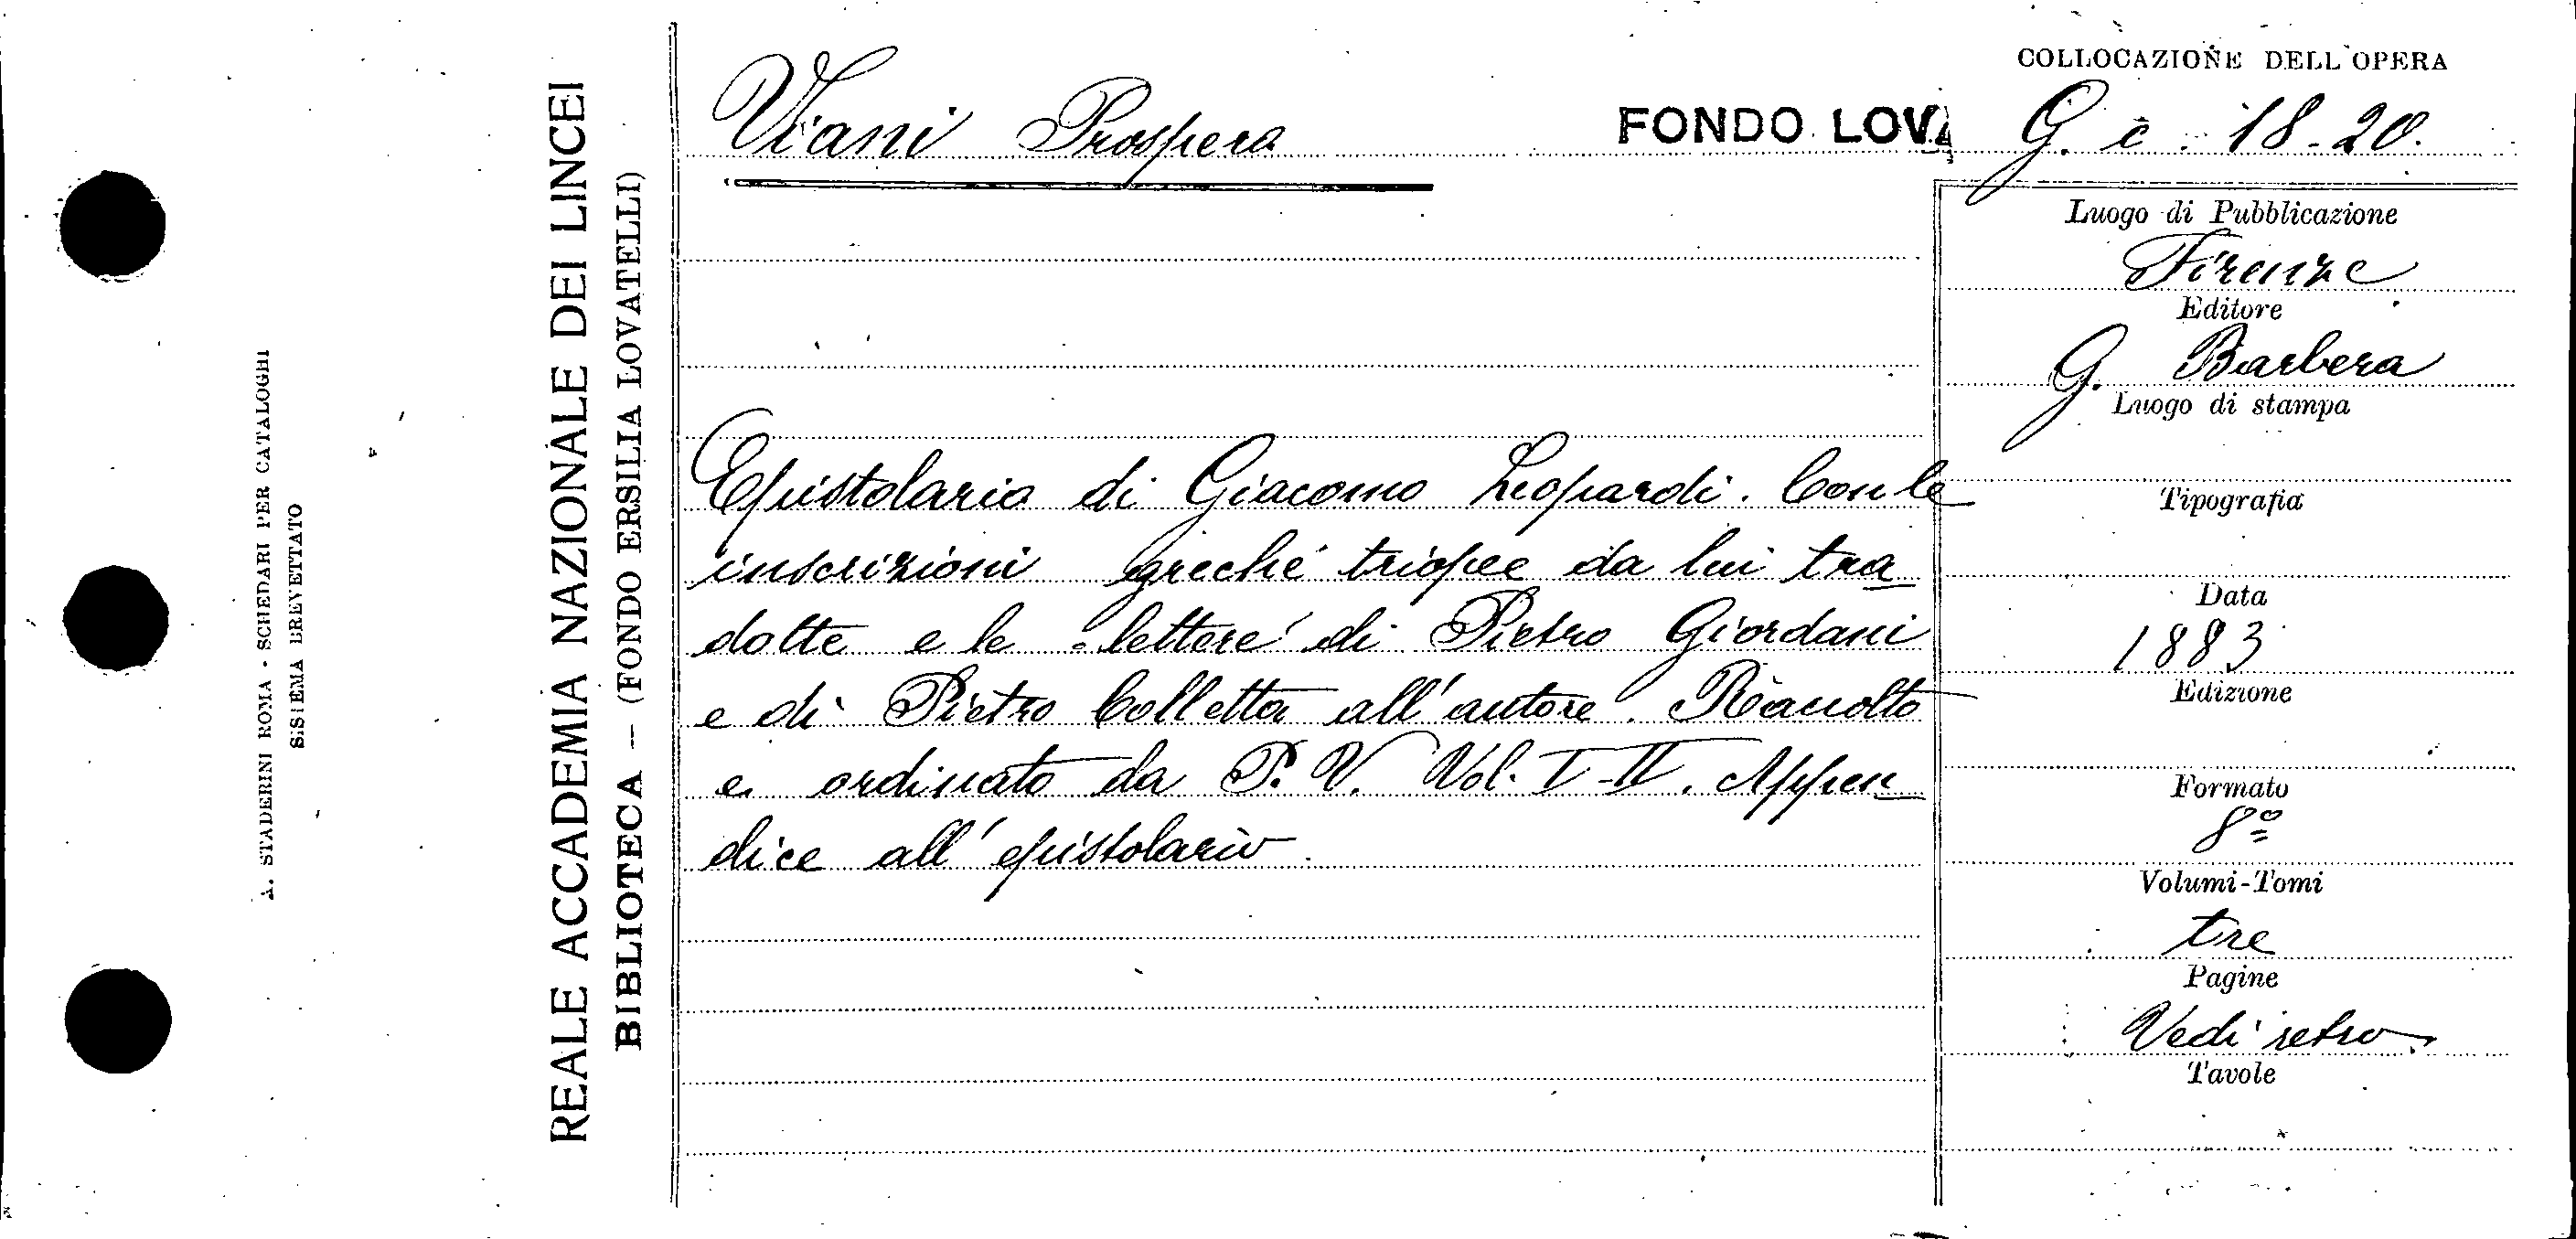 A. STADERINI ROMA - SCHEDARI PER CATALOGHI
SISTEMA BREVETTATO
REALE ACCADEMIA NAZIONALE DEI LINCEI
BIBLIOTECA — (FONDO ERSILIA LOVATELLI)
Viani Prospero
FONDO LOVA
Epistolario di Giacomo Leopardi. Con le
inscrizioni greche triopee da lui tra
dotte e le lettere di Pietro Giordani
e di Pietro Colletta all'autore. Raccolto
e ordinato da P. V. Vol. I-II. Appen
dice all'epistolario.
COLLOCAZIONE DELL'OPERA
G. c. 18-20.
Luogo di Pubblicazione
Firenze
Editore
G. Barbera
Luogo di stampa
Tipografia
Data
1883
Edizione
Formato
8º
Volumi-Tomi
tre
Pagine
Vedi retro
Tavole